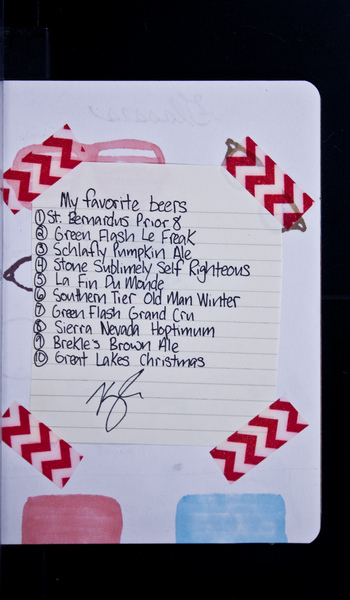 My favorite beers
1 St. Bernardus Prior 8
2 Green Flash Le Freak
3 Schlafly Pumpkin Ale
4 Stone Sublimely Self Righteous
5 La Fin Du Monde
6 Southern Tier Old Man Winter
7 Green Flash Grand Cru
8 Sierra Nevada Hoptimum
9 Brekle's Brown Ale
10 Great Lakes Christmas